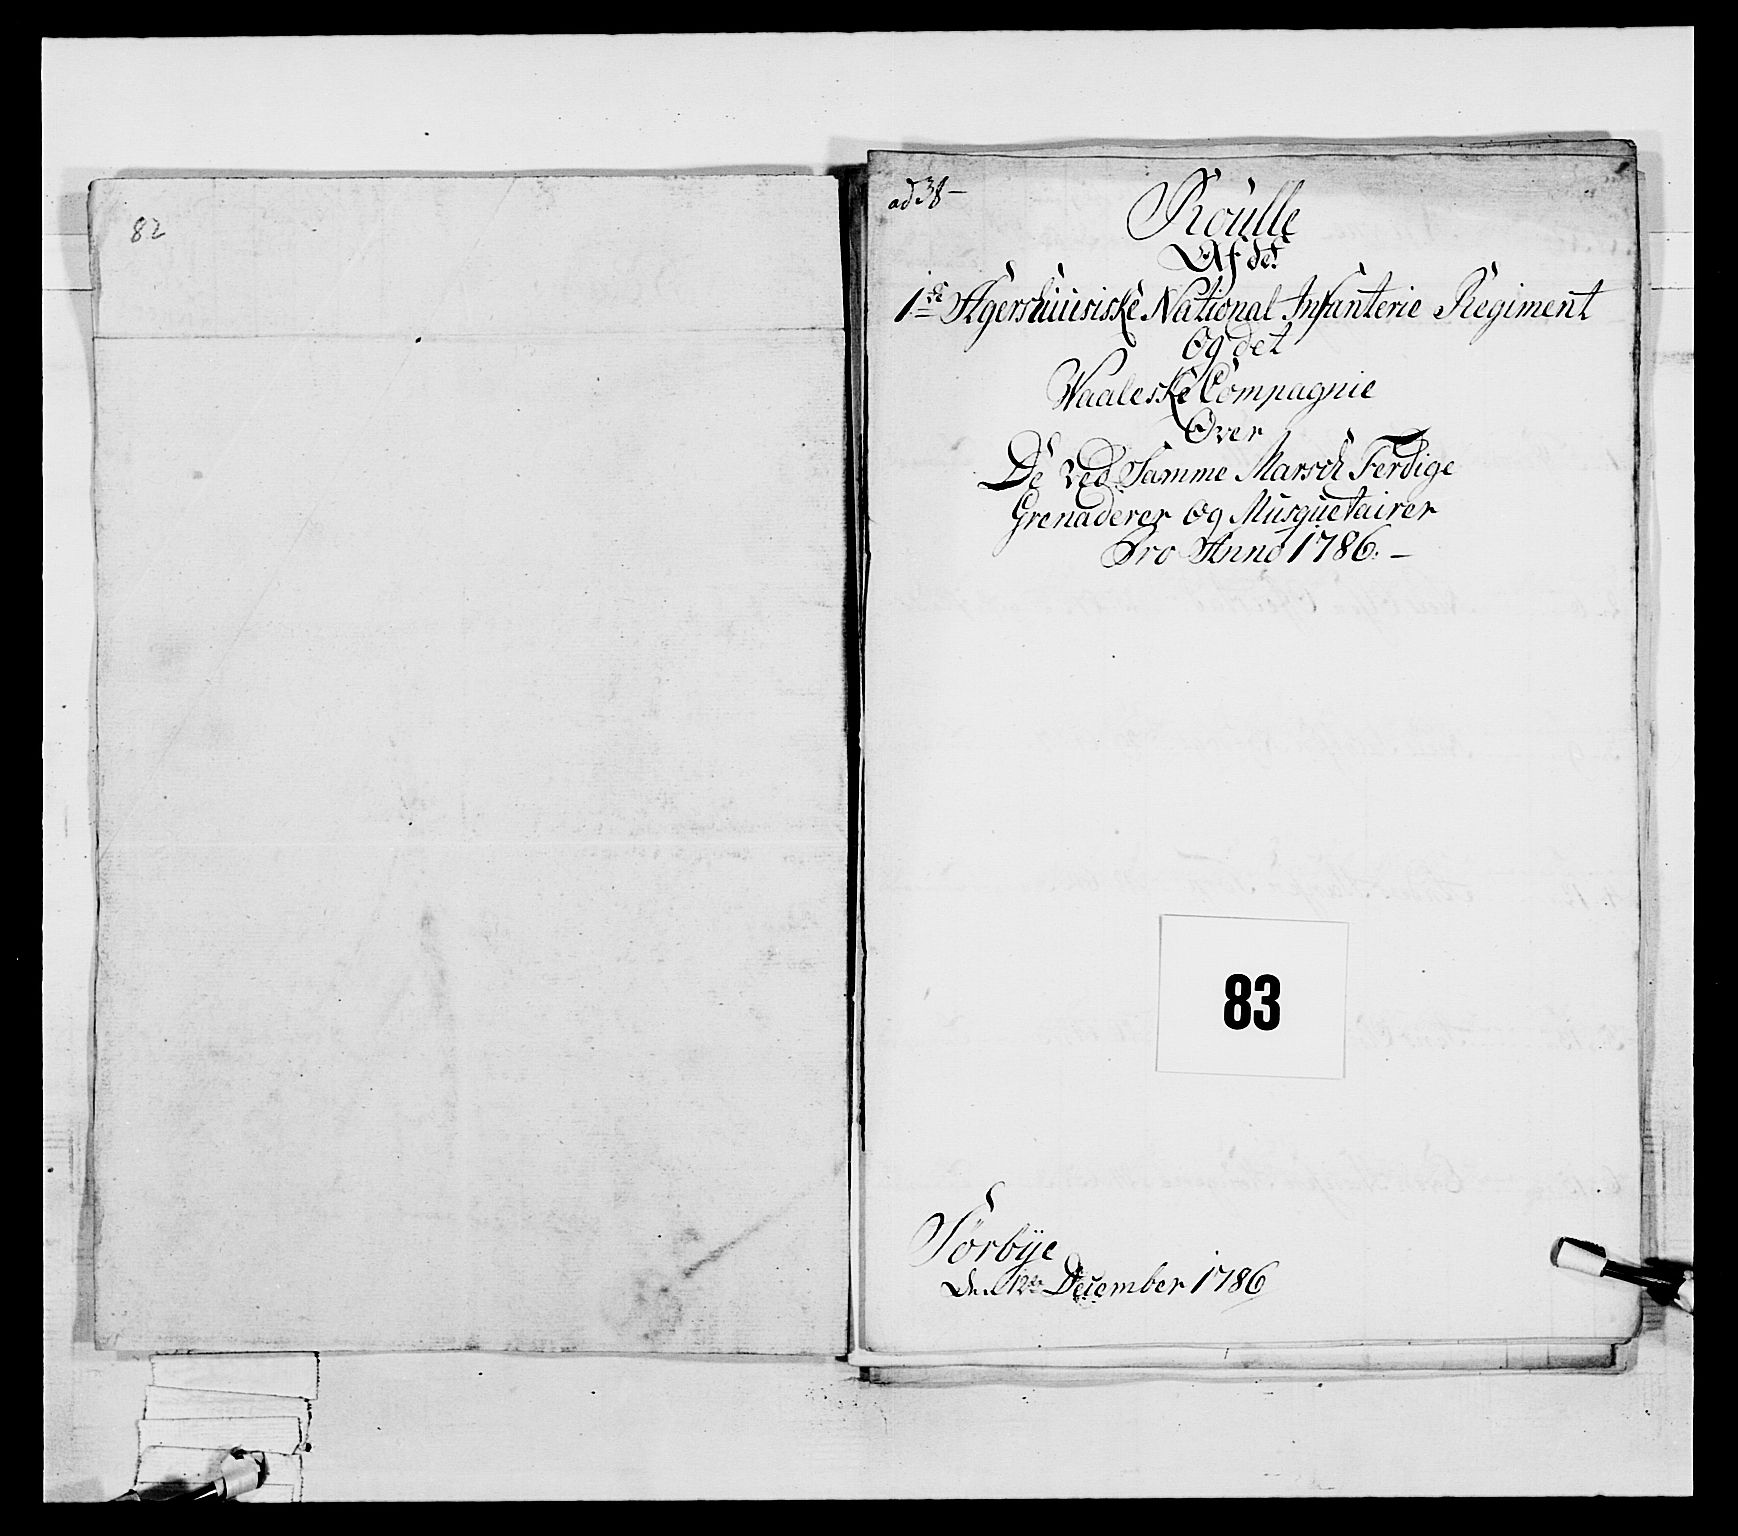 82
ad 38 -
Roulle
Af det
1ste Agershuusiske National Infanterie Regiment
Og det
Waaleske Compagnie
Over
De ved Samme Marsch Ferdige
Grenaderer og Musquetairer
Pro Anno 1786. -
83
Sørbÿe
Den 12te December 1786